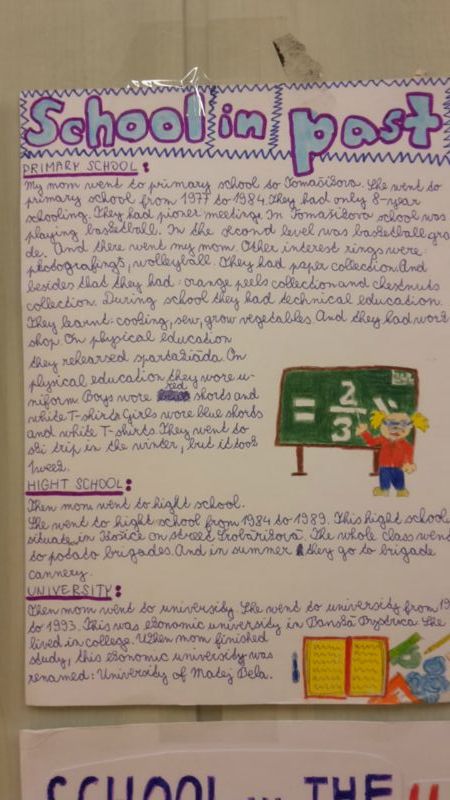 School in past
PRIMARY SCHOOL:
My mom went to primary school to Tomašiková. She went to
primary school from 1977 to 1984. They had only 8-year
schooling. They had pioner meetings. In Tomašiková school was
playing basketball. In the second level was basketball gra-
de. And there went my mom. Other interest rings were:
photografings, wolleyball. They had paper collection. And
besides that they had: orange peels collection and chestnuts
collection. During school they had technical education.
They learnt: cooking, sew, grow vegetables. And they had work
shop. On physical education
they rehearsed spartakiáda. On
physical education they wore u-
niform. Boys wore red shorts and
white T-shirts. Girls wore blue shorts
and white T-shirts. They went to
ski trip in the winter, but it took
1 week.
= 2/3
HIGHT SCHOOL:
Then mom went to hight school.
She went to hight school from 1984 to 1989. This hight school
situate in Košice on street Šrobárová. The whole class went
to potato brigades. And in summer they go to brigade
cannery.
UNIVERSITY:
Then mom went to university. She went to university from 19
to 1993. This was economic university in Banská Bystrica. She
lived in college. When mom finished
study, this economic university was
renamed: University of Matej Bela.
SCHOOL IN THE